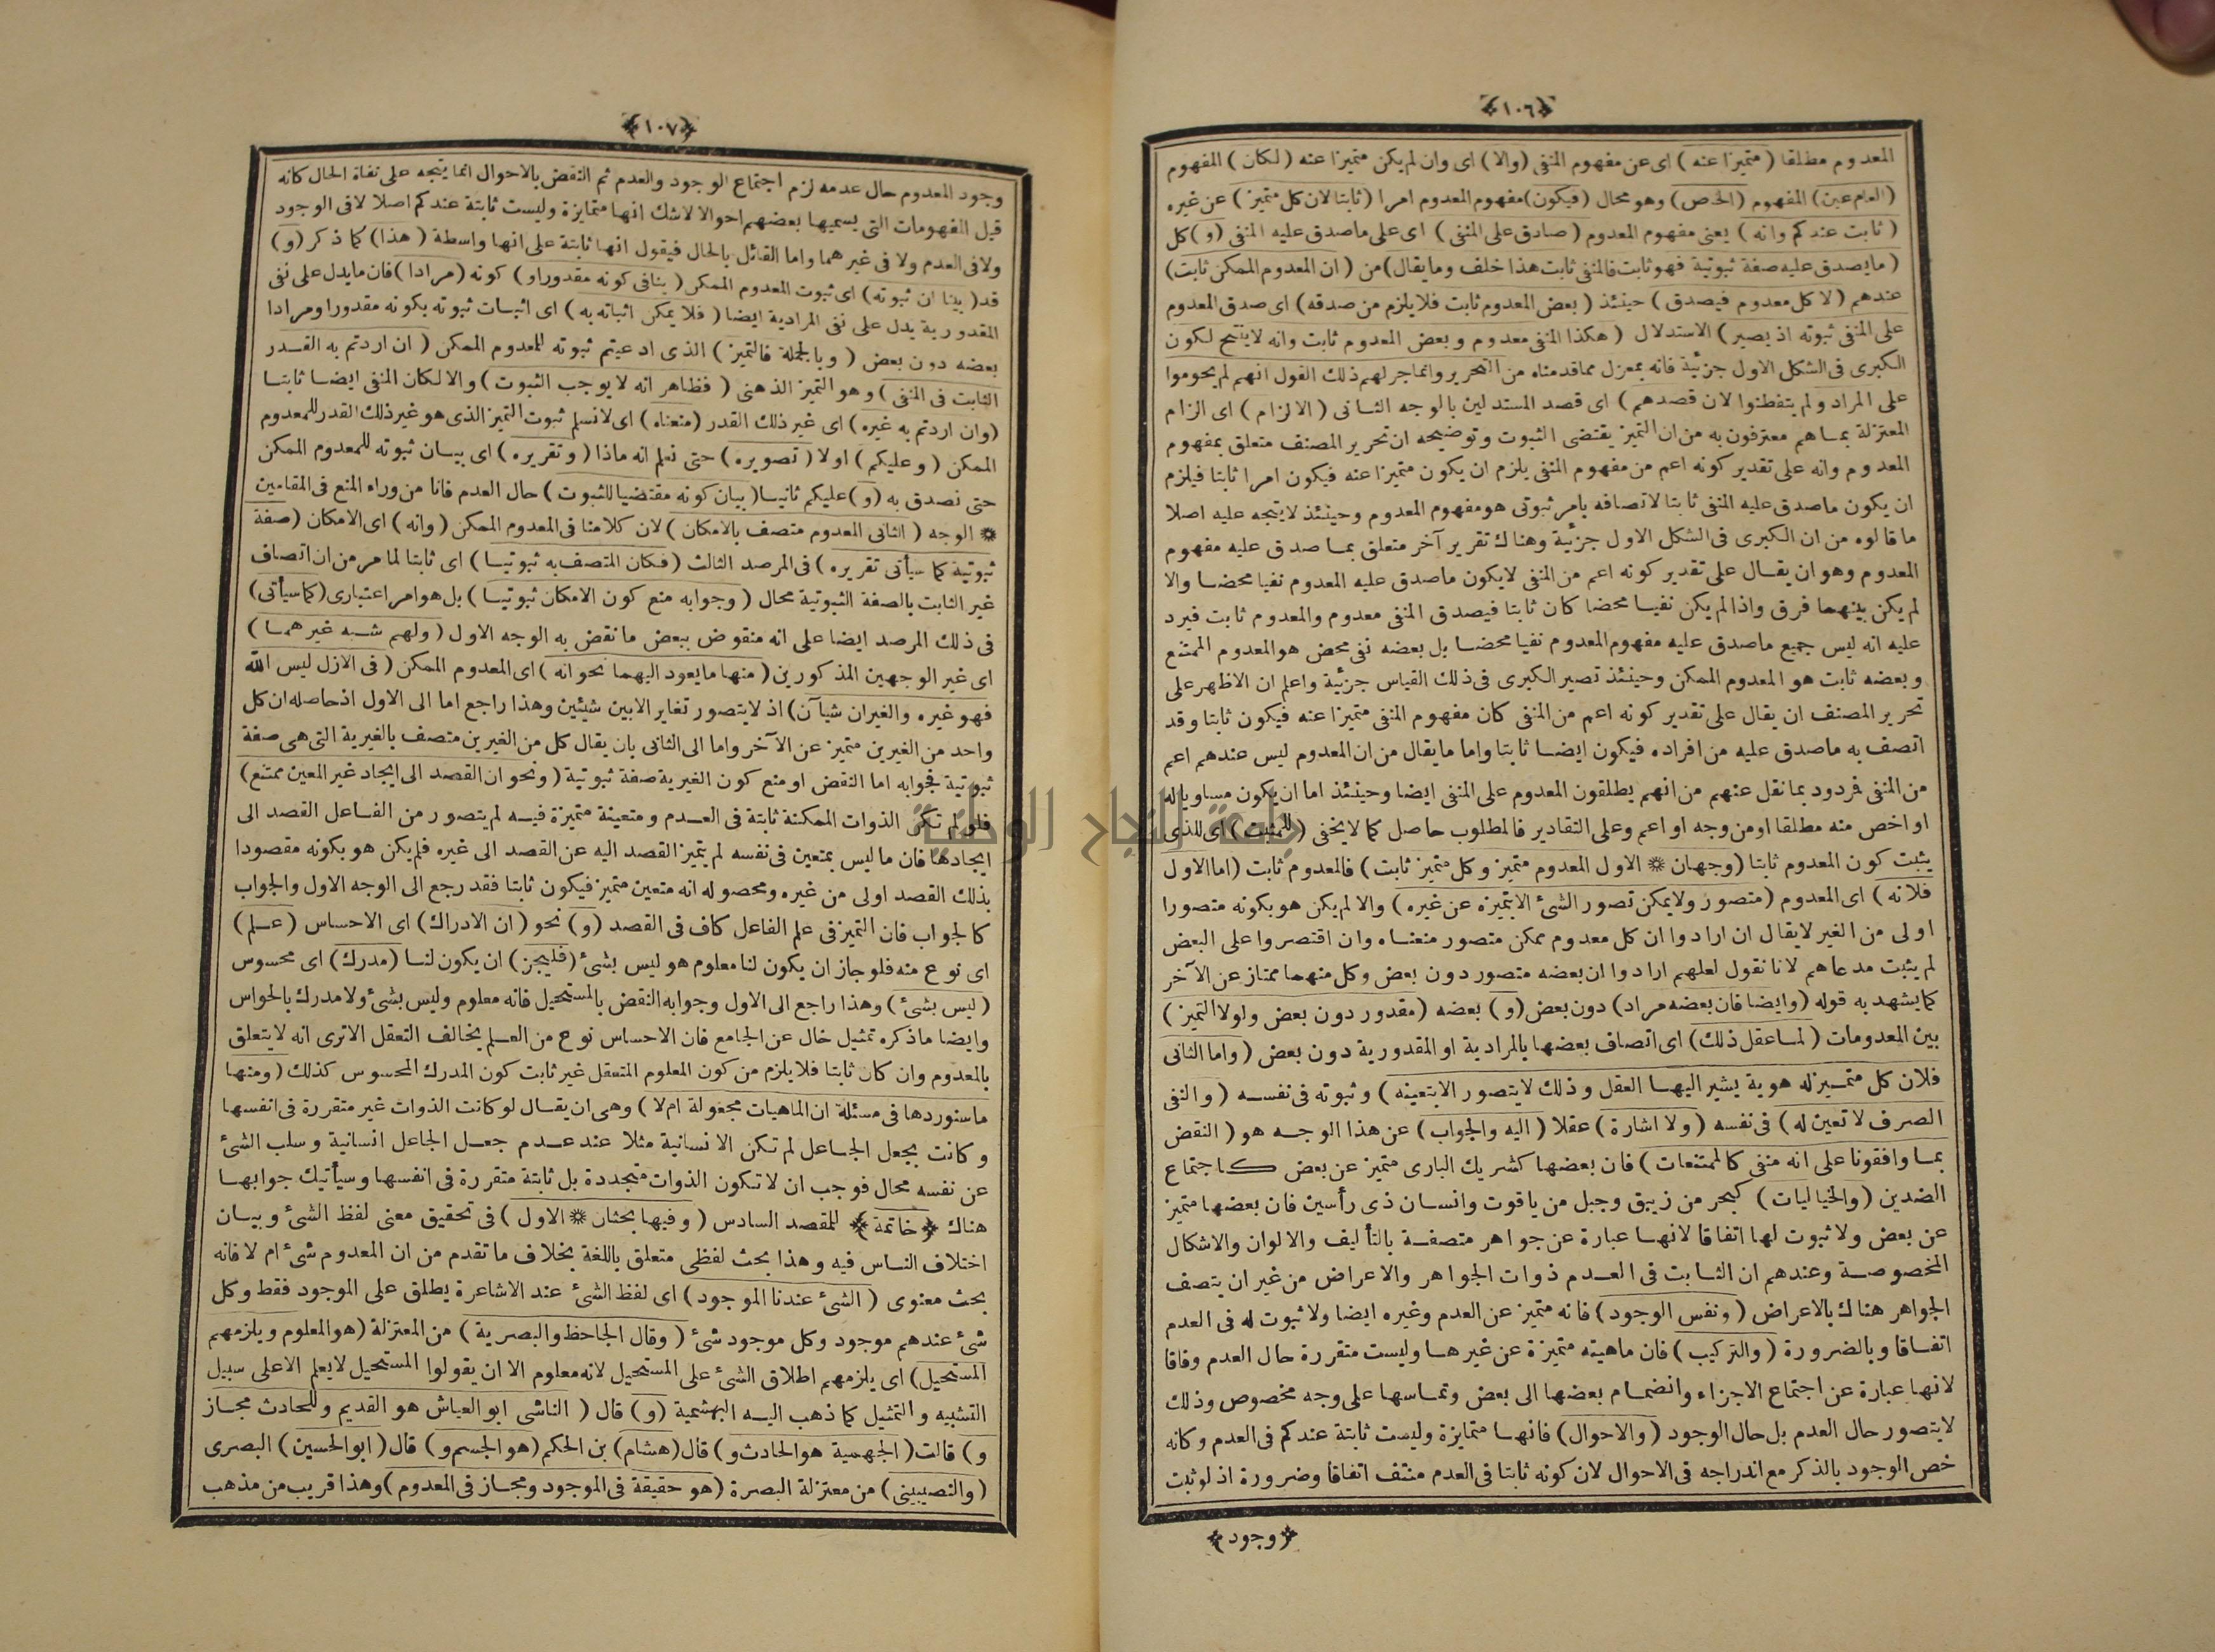 ﴿١٠٦﴾
المعدوم مطلقا (متميزا عنه) اى عن مفهوم المنفى (والا) اى وان لم يكن متميزا عنه (لكان) المفهوم
(العام عين) المفهوم (الخاص) وهو محال (فيكون) مفهوم المعدوم امرا (ثابتا لان كل متميز) عن غيره
(ثابت عندكم وانه) يعنى مفهوم المعدوم (صادق على المنفى) اى على ماصدق عليه المنفى (و) كل
(مايصدق عليه صفة ثبوتية فهو ثابت فالمنفى ثابت هذا خلف ومايقال) من (ان المعدوم الممكن ثابت)
عندهم (لا كل معدوم فيصدق) حينئذ (بعض المعدوم ثابت فلا يلزم من صدقه) اى صدق المعدوم
على المنفى ثبوته اذ يصير) الاستدلال (هكذا المنفى معدوم وبعض المعدوم ثابت وانه لاينتج لكون
الكبرى فى الشكل الاول جزئية فانه بمعزل مماقدمناه من التحرير وانما جرلهم ذلك القول انهم لم يحوموا
على المراد ولم يتفطنوا لان قصدهم) اى قصد المستدلين بالوجه الثانى (الالزام) اى الزام
المعتزلة بماهم معترفون به من ان التميز يقتضى الثبوت وتوضيحه ان تحرير المصنف متعلق بمفهوم
المعدوم وانه على تقدير كونه اعم من مفهوم المنفى يلزم ان يكون متميزا عنه فيكون امرا ثابتا فيلزم
ان يكون ماصدق عليه المنفى ثابتا لاتصافه بامر ثبوتى هو مفهوم المعدوم وحينئذ لايتجه عليه اصلا
ما قالوه من ان الكبرى فى الشكل الاول جزئية وهناك تقرير آخر متعلق بما صدق عليه مفهوم
المعدوم وهو ان يقال على تقدير كونه اعم من المنفى لايكون ماصدق عليه المعدوم نفيا محضا والا
لم يكن بينهما فرق واذا لم يكن نفيا محضا كان ثابتا فيصدق المنفى معدوم والمعدوم ثابت فيرد
عليه انه ليس جميع ماصدق عليه مفهوم المعدوم نفيا محضا بل بعضه نفى محض هو المعدوم الممتنع
وبعضه ثابت هو المعدوم الممكن وحينئذ تصير الكبرى فى ذلك القياس جزئية واعلم ان الاظهر على
تحرير المصنف ان يقال على تقدير كونه اعم من المنفى كان مفهوم المنفى متميزا عنه فيكون ثابتا وقد
اتصف به ماصدق عليه من افراده فيكون ايضا ثابتا واما مايقال من ان المعدوم ليس عندهم اعم
من المنفى فمردود بما نقل عنهم من انهم يطلقون المعدوم على المنفى ايضا وحينئذ اما ان يكون مساوياله
او اخص منه مطلقا او من وجه او اعم وعلى التقادير فالمطلوب حاصل كما لايخفى (للمثبت) اى للذى
يثبت كون المعدوم ثابتا (وجهان * الاول المعدوم متميز وكل متميز ثابت) فالمعدوم ثابت (اما الاول
فلانه) اى المعدوم (متصور ولا يمكن تصور الشئ الا بتميزه عن غيره) والا لم يكن هو بكونه متصورا
اولى من الغير لايقال ان ارادوا ان كل معدوم ممكن متصور منعناه وان اقتصروا على البعض
لم يثبت مدعاهم لانا نقول لعلهم ارادوا ان بعضه متصور دون بعض وكل منهما ممتاز عن الآخر
كما يشهد به قوله (وايضا فان بعضه مراد) دون بعض (و) بعضه (مقدور دون بعض ولولا التميز)
بين المعدومات (لما عقل ذلك) اى اتصاف بعضها بالمرادية او المقدورية دون بعض (واما الثانى
فلان كل متميز له هوية يشير اليها العقل وذلك لايتصور الا بتعينه) وثبوته فى نفسه (والنفى
الصرف لاتعين له) فى نفسه (ولا اشارة) عقلا (اليه والجواب) عن هذا الوجه هو (النقض
بما وافقونا على انه منفى كالممتنعات) فان بعضها كشريك البارى متميز عن بعض كاجتماع
الضدين (والخياليات) كبحر من زيبق وجبل من ياقوت وانسان ذى رأسين فان بعضها متميز
عن بعض ولا ثبوت لها اتفاقا لانها عبارة عن جواهر متصفة بالتأليف والالوان والاشكال
المخصوصة وعندهم ان الثابت فى العدم ذوات الجواهر والاعراض من غير ان يتصف
الجواهر هناك بالاعراض (ونفس الوجود) فانه متميز عن العدم وغيره ايضا ولا ثبوت له فى العدم
اتفاقا وبالضرورة (والتركيب) فان ماهيته متميزة عن غيرها وليست متقررة حال العدم وفاقا
لانها عبارة عن اجتماع الاجزاء وانضمام بعضها الى بعض وتماسها على وجه مخصوص وذلك
لايتصور حال العدم بل حال الوجود (والاحوال) فانها متمايزة وليست ثابتة عندكم فى العدم وكانه
خص الوجود بالذكر مع اندراجه فى الاحوال لان كونه ثابتا فى العدم منتف اتفاقا وضرورة اذ لو ثبت
﴿وجود﴾
﴿١٠٧﴾
وجود المعدوم حال عدمه لزم اجتماع الوجود والعدم ثم النقض بالاحوال انما يتجه على نفاة الحال كانه
قيل المفهومات التى يسميها بعضهم احوالا لاشك انها متمايزة وليست ثابتة عندكم اصلا لا فى الوجود
ولا فى العدم ولا فى غيرهما واما القائل بالحال فيقول انها ثابتة على انها واسطة (هذا) كما ذكر (و)
قد (بينا ان ثبوته) اى ثبوت المعدوم الممكن (ينافى كونه مقدورا و) كونه (مرادا) فان مايدل على نفى
المقدورية يدل على نفى المرادية ايضا (فلا يمكن اثباته به) اى اثبات ثبوته بكونه مقدورا ومرادا
بعضه دون بعض (وبالجملة فالتميز) الذى ادعيتم ثبوته للمعدوم الممكن (ان اردتم به القدر
الثابت فى المنفى) وهو التميز الذهنى (فظاهر انه لا يوجب الثبوت) والا لكان المنفى ايضا ثابتا
(وان اردتم به غيره) اى غير ذلك القدر (منعناه) اى لانسلم ثبوت التميز الذى هو غير ذلك القدر للمعدوم
الممكن (وعليكم) اولا (تصويره) حتى نعلم انه ماذا (وتقريره) اى بيان ثبوته للمعدوم الممكن
حتى نصدق به (و) عليكم ثانيا (بيان كونه مقتضيا للثبوت) حال العدم فانا من وراء المنع فى المقامين
* الوجه (الثانى المعدوم متصف بالامكان) لان كلامنا فى المعدوم الممكن (وانه) اى الامكان (صفة
ثبوتية كما سيأتى تقريره) فى المرصد الثالث (فكان المتصف به ثبوتيا) اى ثابتا لما مر من ان اتصاف
غير الثابت بالصفة الثبوتية محال (وجوابه منع كون الامكان ثبوتيا) بل هو امر اعتبارى (كما سيأتى)
فى ذلك المرصد ايضا على انه منقوض ببعض ما نقض به الوجه الاول (ولهم شبه غيرهما)
اى غير الوجهين المذكورين (منها مايعود اليهما نحو انه) اى المعدوم الممكن (فى الازل ليس الله
فهو غيره والغيران شيآن) اذ لايتصور تغاير الا بين شيئين وهذا راجع اما الى الاول اذ حاصله ان كل
واحد من الغيرين متميز عن الآخر واما الى الثانى بان يقال كل من الغيرين متصف بالغيرية التى هى صفة
ثبوتية فجوابه اما النقض او منع كون الغيرية صفة ثبوتية (ونحو ان القصد الى ايجاد غير المعين ممتنع)
فلو لم تكن الذوات الممكنة ثابتة فى العدم ومتعينة متميزة فيه لم يتصور من الفاعل القصد الى
ايجادها فان ما ليس بمتعين فى نفسه لم يتميز القصد اليه عن القصد الى غيره فلم يكن هو بكونه مقصودا
بذلك القصد اولى من غيره ومحصوله انه متعين متميز فيكون ثابتا فقد رجع الى الوجه الاول والجواب
كالجواب فان التميز فى علم الفاعل كاف فى القصد (و) نحو (ان الادراك) اى الاحساس (علم)
اى نوع منه فلو جاز ان يكون لنا معلوم هو ليس بشئ (فليجز) ان يكون لنا (مدرك) اى محسوس
(ليس بشئ) وهذا راجع الى الاول وجوابه النقض بالمستحيل فانه معلوم وليس بشئ ولا مدرك بالحواس
وايضا ماذكره تمثيل خال عن الجامع فان الاحساس نوع من العلم يخالف التعقل الاترى انه لايتعلق
بالمعدوم وان كان ثابتا فلا يلزم من كون المعلوم المتعقل غير ثابت كون المدرك المحسوس كذلك (ومنها
ماسنوردها فى مسئلة ان الماهيات مجعولة ام لا) وهى ان يقال لو كانت الذوات غير متقررة فى انفسها
وكانت بجعل الجاعل لم تكن الانسانية مثلا عند عدم جعل الجاعل انسانية وسلب الشئ
عن نفسه محال فوجب ان لا تكون الذوات متجددة بل ثابتة متقررة فى انفسها وسيأتيك جوابها
هناك ﴿خاتمة﴾ للمقصد السادس (وفيها بحثان * الاول) فى تحقيق معنى لفظ الشئ وبيان
اختلاف الناس فيه وهذا بحث لفظى متعلق باللغة بخلاف ماتقدم من ان المعدوم شئ ام لا فانه
بحث معنوى (الشئ عندنا الموجود) اى لفظ الشئ عند الاشاعرة يطلق على الموجود فقط وكل
شئ عندهم موجود وكل موجود شئ (وقال الجاحظ والبصرية) من المعتزلة (هو المعلوم ويلزمهم
المستحيل) اى يلزمهم اطلاق الشئ على المستحيل لانه معلوم الا ان يقولوا المستحيل لايعلم الا على سبيل
التشبيه والتمثيل كما ذهب اليه البهشمية (و) قال (الناشى ابو العباش هو القديم وللحادث مجاز
و) قالت (الجهمية هو الحادث و) قال (هشام) بن الحكم (هو الجسم و) قال (ابو الحسين) البصرى
(والنصيبينى) من معتزلة البصرة (هو حقيقة فى الموجود ومجاز فى المعدوم) وهذا قريب من مذهب
جامعة النجاح الوطنية